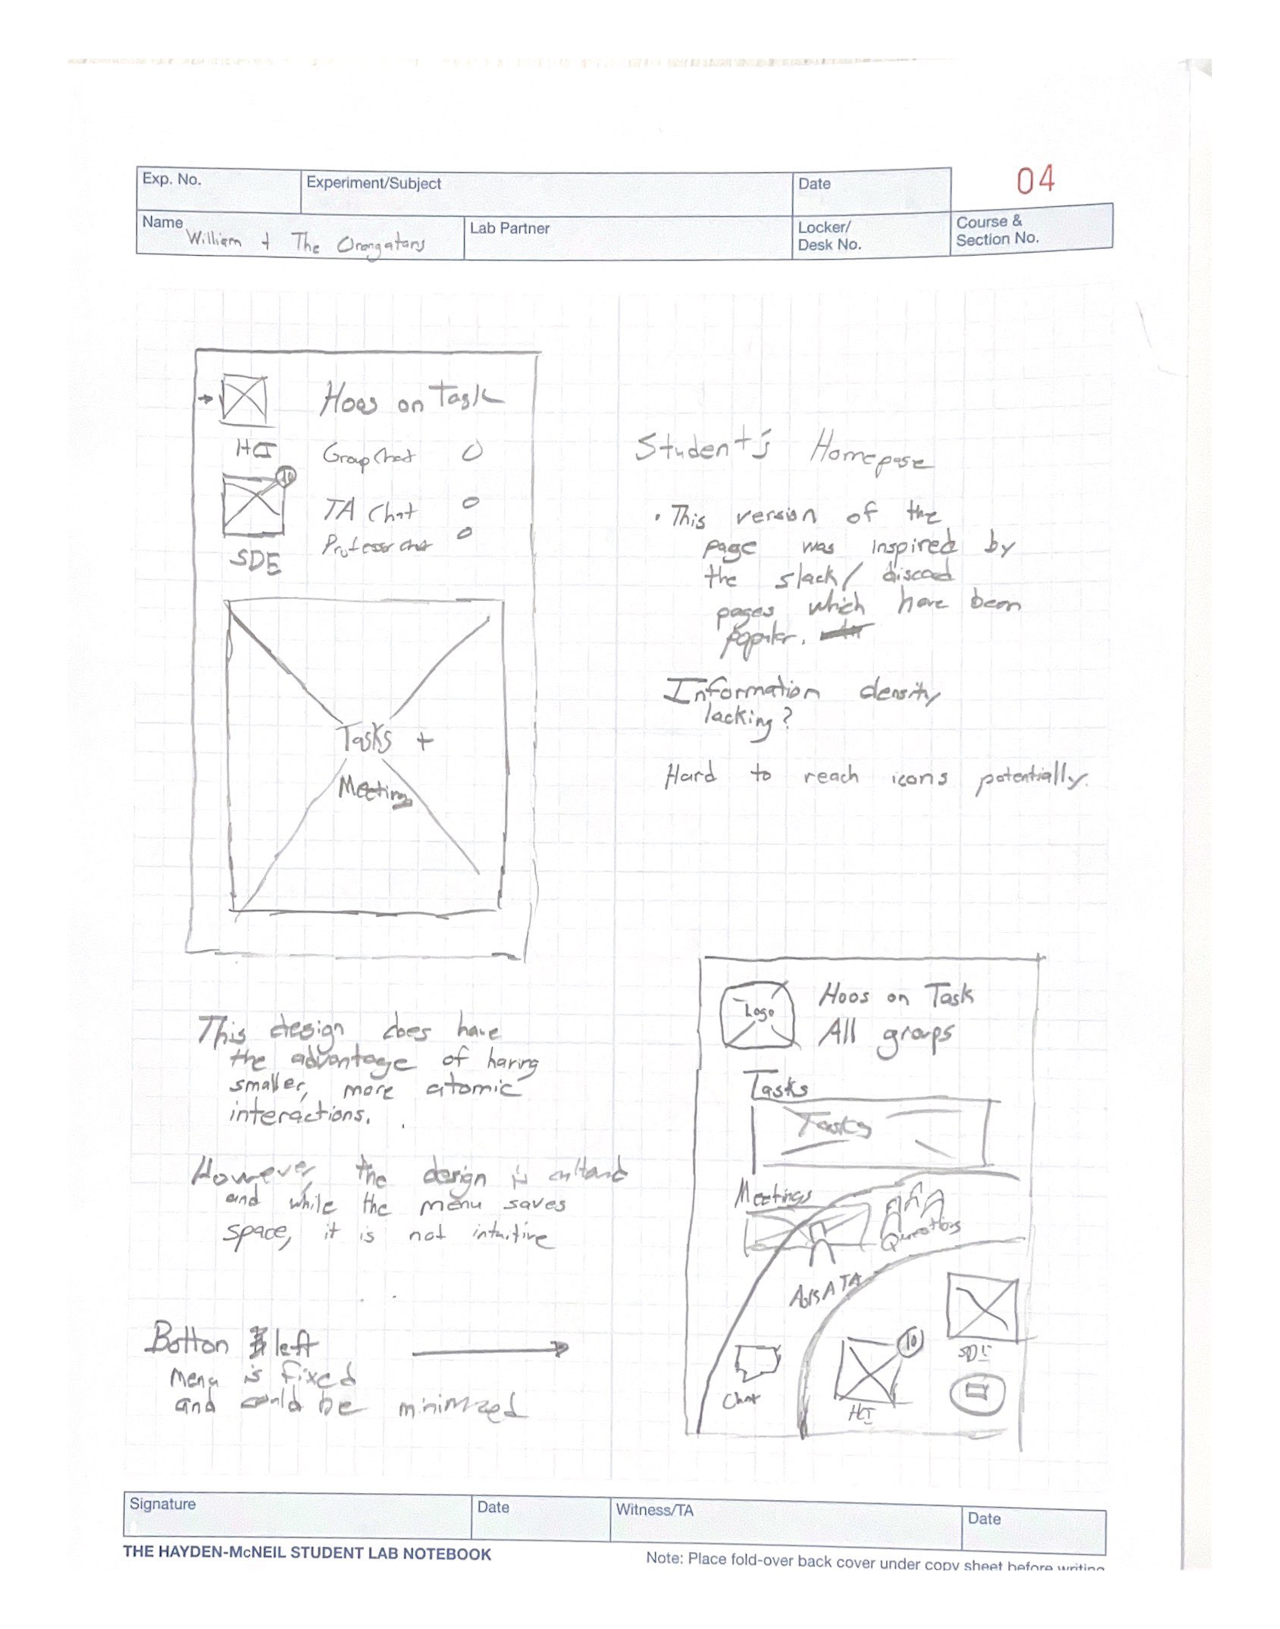 Exp. No.
Experiment/Subject
Date
04
Name
William + The Orongatans
Lab Partner
Locker/
Desk No.
Course &
Section No.
Hoos on Task
HCI
Group Chat
10
TA Chat
Professor chat
SDE
Tasks +
Meeting
Student's Homepage
• This version of the
page was inspired by
the slack/ discord
pages which have been
popular.
Information density
lacking?
Hard to reach icons potentially.
This design does have
the advantage of having
smaller, more atomic
interactions.
However, the design is
and while the menu saves
space, it is not intuitive
Botton left
Menu is fixed
and could be minimized
Logo
Hoos on Task
All groups
Tasks
Tasks
Meetings
Questions
Ask A TA
Chat
10
HCI
SDE
Signature
Date
Witness/TA
Date
THE HAYDEN-McNEIL STUDENT LAB NOTEBOOK
Note: Place fold-over back cover under copy sheet before writing